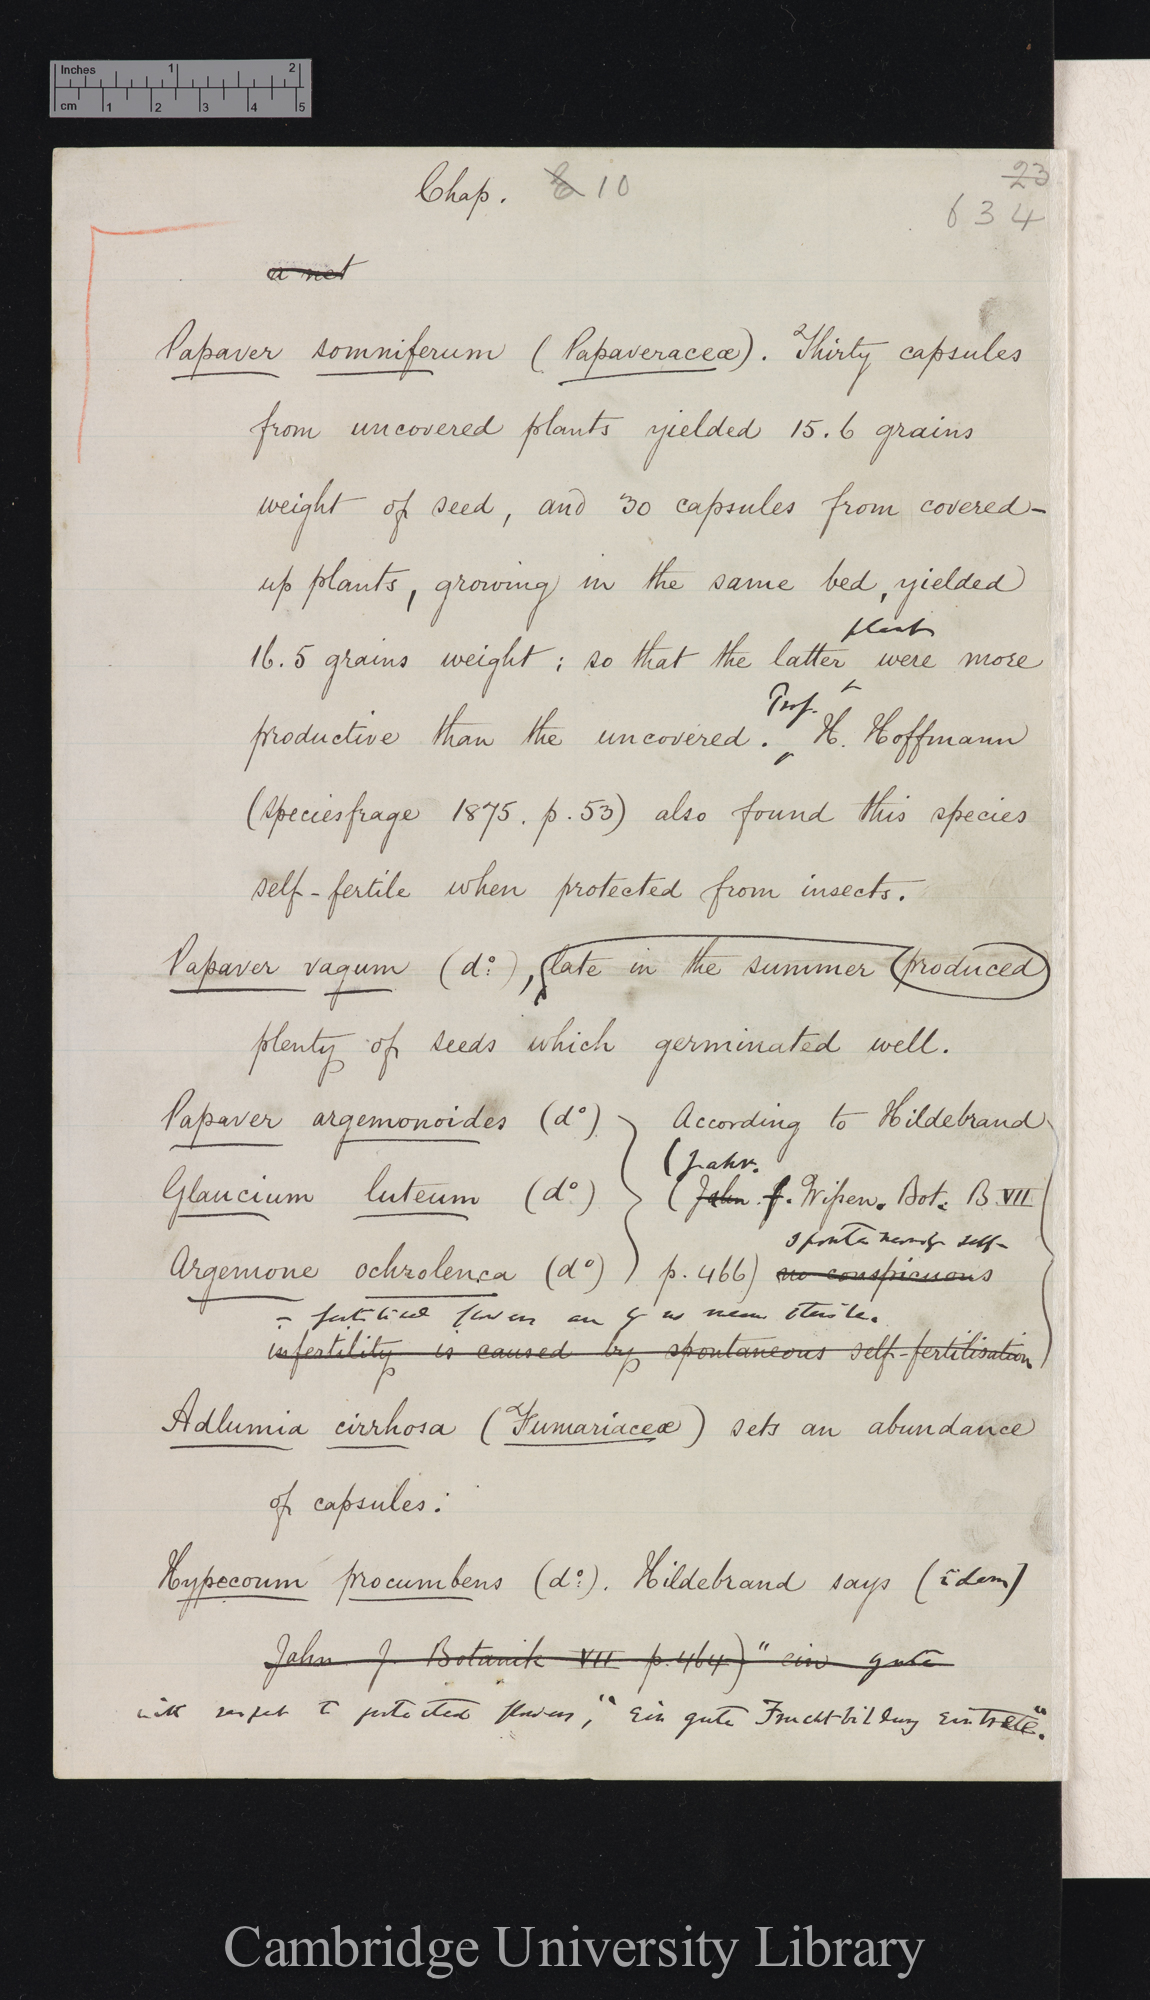 Inches 1 2
cm 1 2 3 4 5
Chap. 10
23
634
a net
Papaver somniferum (Papaveraceæ). Thirty capsules
from uncovered plants yielded 15.6 grains
weight of seed, and 30 capsules from covered-
up plants, growing in the same bed, yielded
plants
16.5 grains weight; so that the latter were more
Prof.
productive than the uncovered. H. Hoffmann
(speciesfrage 1875. p. 53) also found this species
self-fertile when protected from insects.
Papaver vagum (do:), late in the summer produced
plenty of seeds which germinated well.
Papaver argemonoides (do) According to Hildebrand
(Jahr.
Glaucium luteum (do) (Jahn f. Wissen. Bot. B VII
spontaneously self-
Argemone ochroleuca (do) p. 466) no conspicuous
- fertilised flowers are by no means sterile.
infertility is caused by spontaneous self-fertilisation
Adlumia cirrhosa (Fumariaceæ) sets an abundance
of capsules:
Hypecoum procumbens (do:). Hildebrand says (idem)
Jahn J. Botanik VII p. 464) "ein gute
with respect to protected flowers, "ein gute Fruchtbildung eintrete".
Cambridge University Library